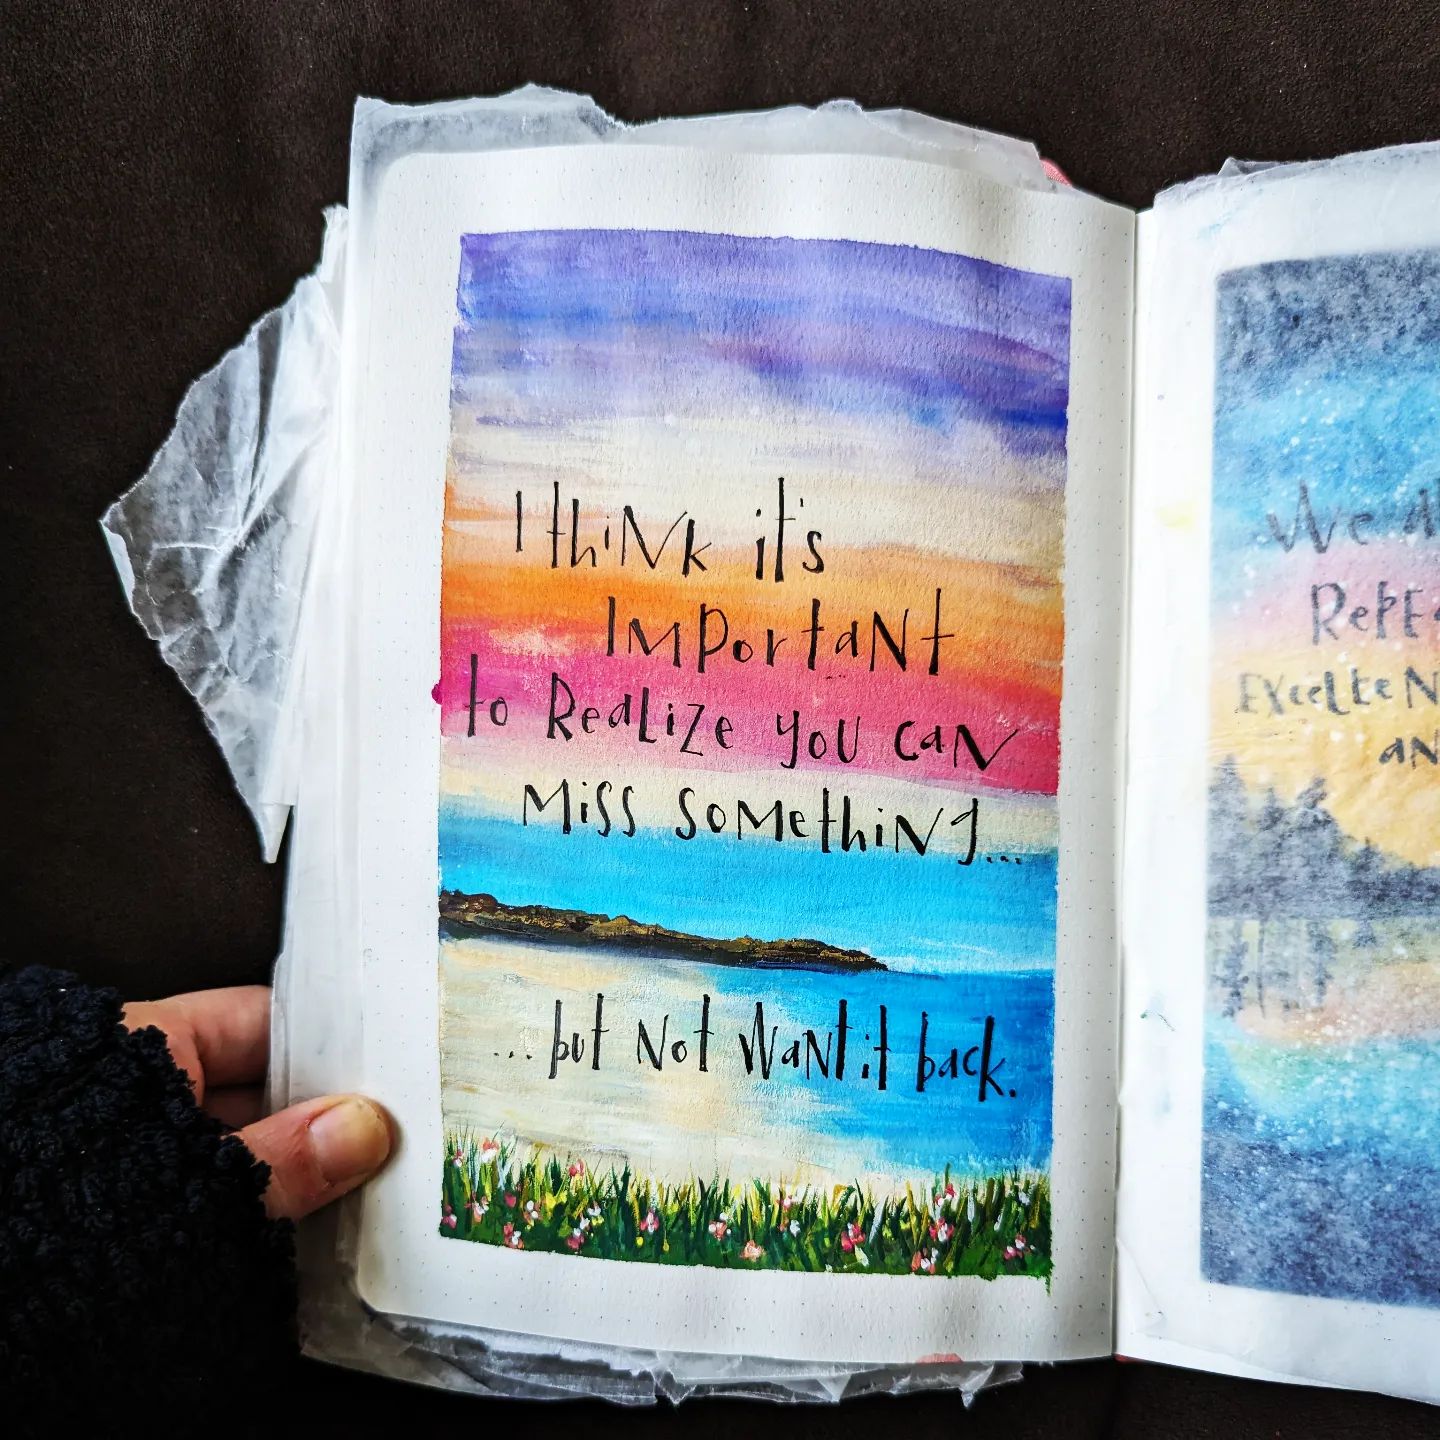 I thiNk it's
ImPortaNt
to RealiZe you can
Miss soMethiNg...
...but Not WaNt it back.
We
EXcelleN
aN